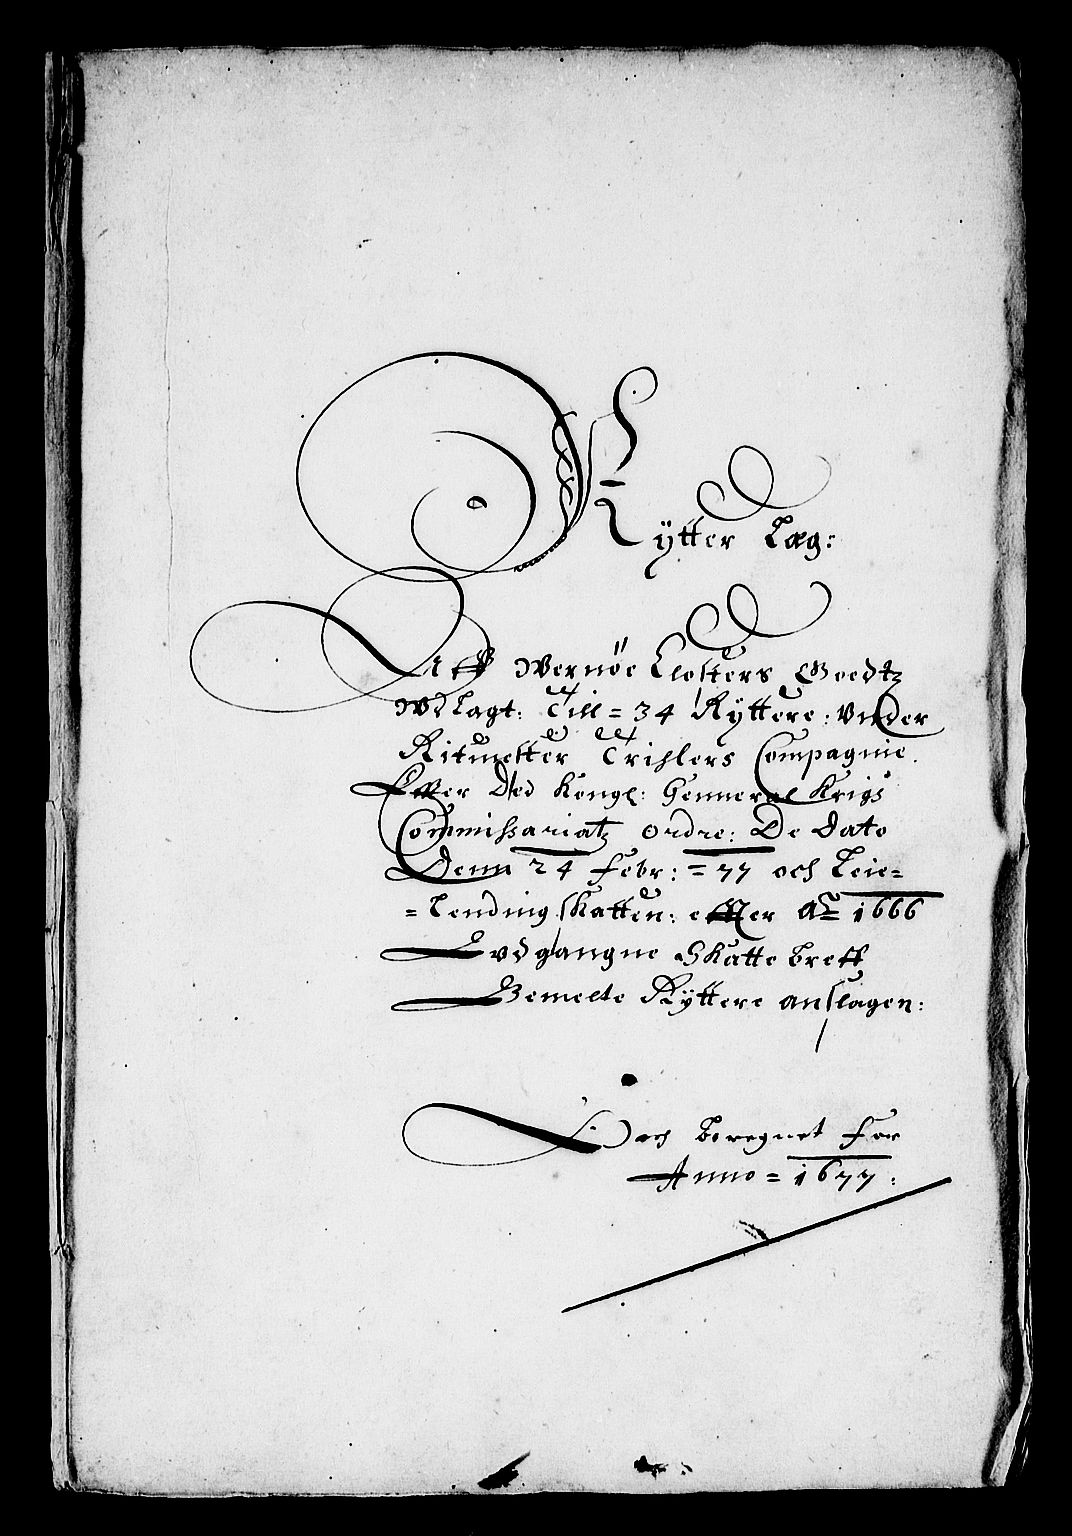 Rÿtter Læg:
Aff Wernöe Closters Goedtz
Wdlagt: Till = 34 Rÿttere: Vnder
Ritmester Trislers Compagnie.
Effter Ded Kongl: Genneral Krigs
Commissariatz ordre: De Dato
Denn 24 Febr: = 77 och Leie=
=Lending skatten: effter Ao 1666
Vdgangne Skatte breff
Bemelte Rÿttere anslagen:
Och beregnet for
Anno = 1677: